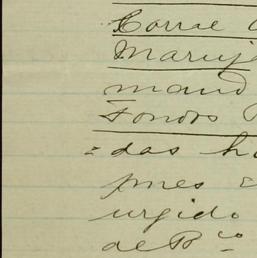 Corral
Maruja
mand
Fondos
= das ha
pues
urgido
de Bco